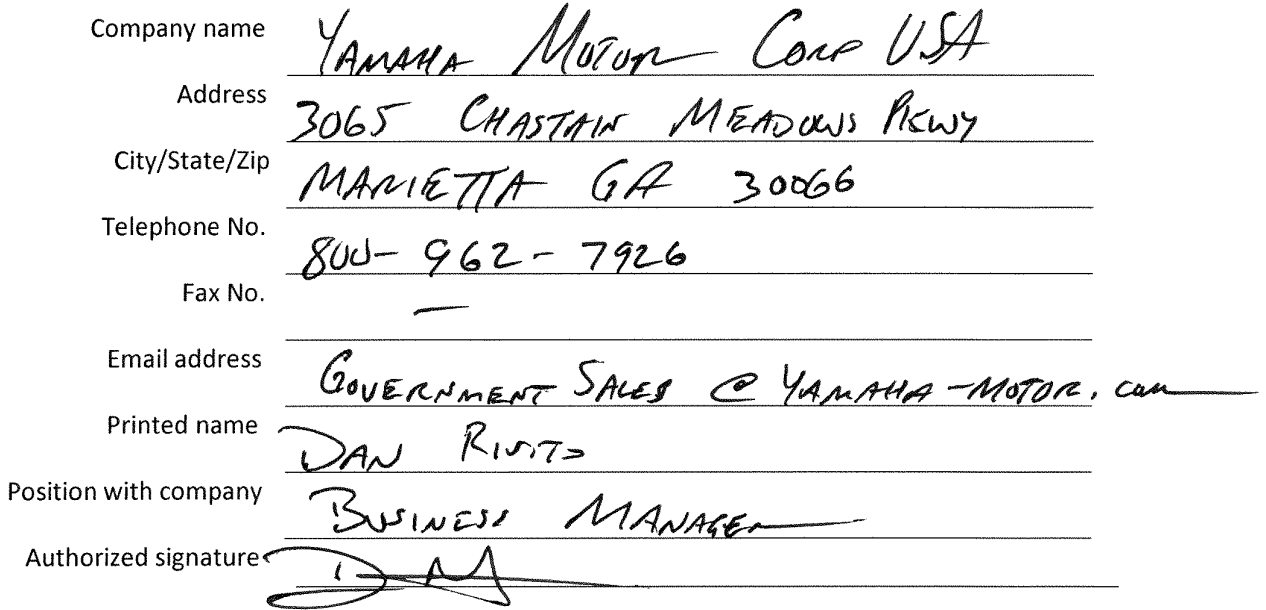 Company name YAMAHA MOTOR CORP USA
Address 3065 CHASTAIN MEADOWS PKWY
City/State/Zip MARIETTA GA 30066
Telephone No. 800- 962- 7926
Fax No. —
Email address GOVERNMENT SALES @ YAMAHA-MOTOR.com
Printed name DAN
Position with company BUSINESS MANAGER
Authorized signature